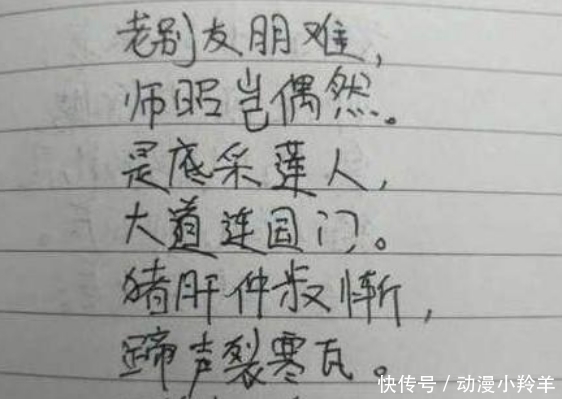 老别友朋难，
师昭岂偶然。
是底采莲人，
大道连国门。
猪肝仲叔惭，
蹄声裂寒瓦。
快传号/动漫小羚羊